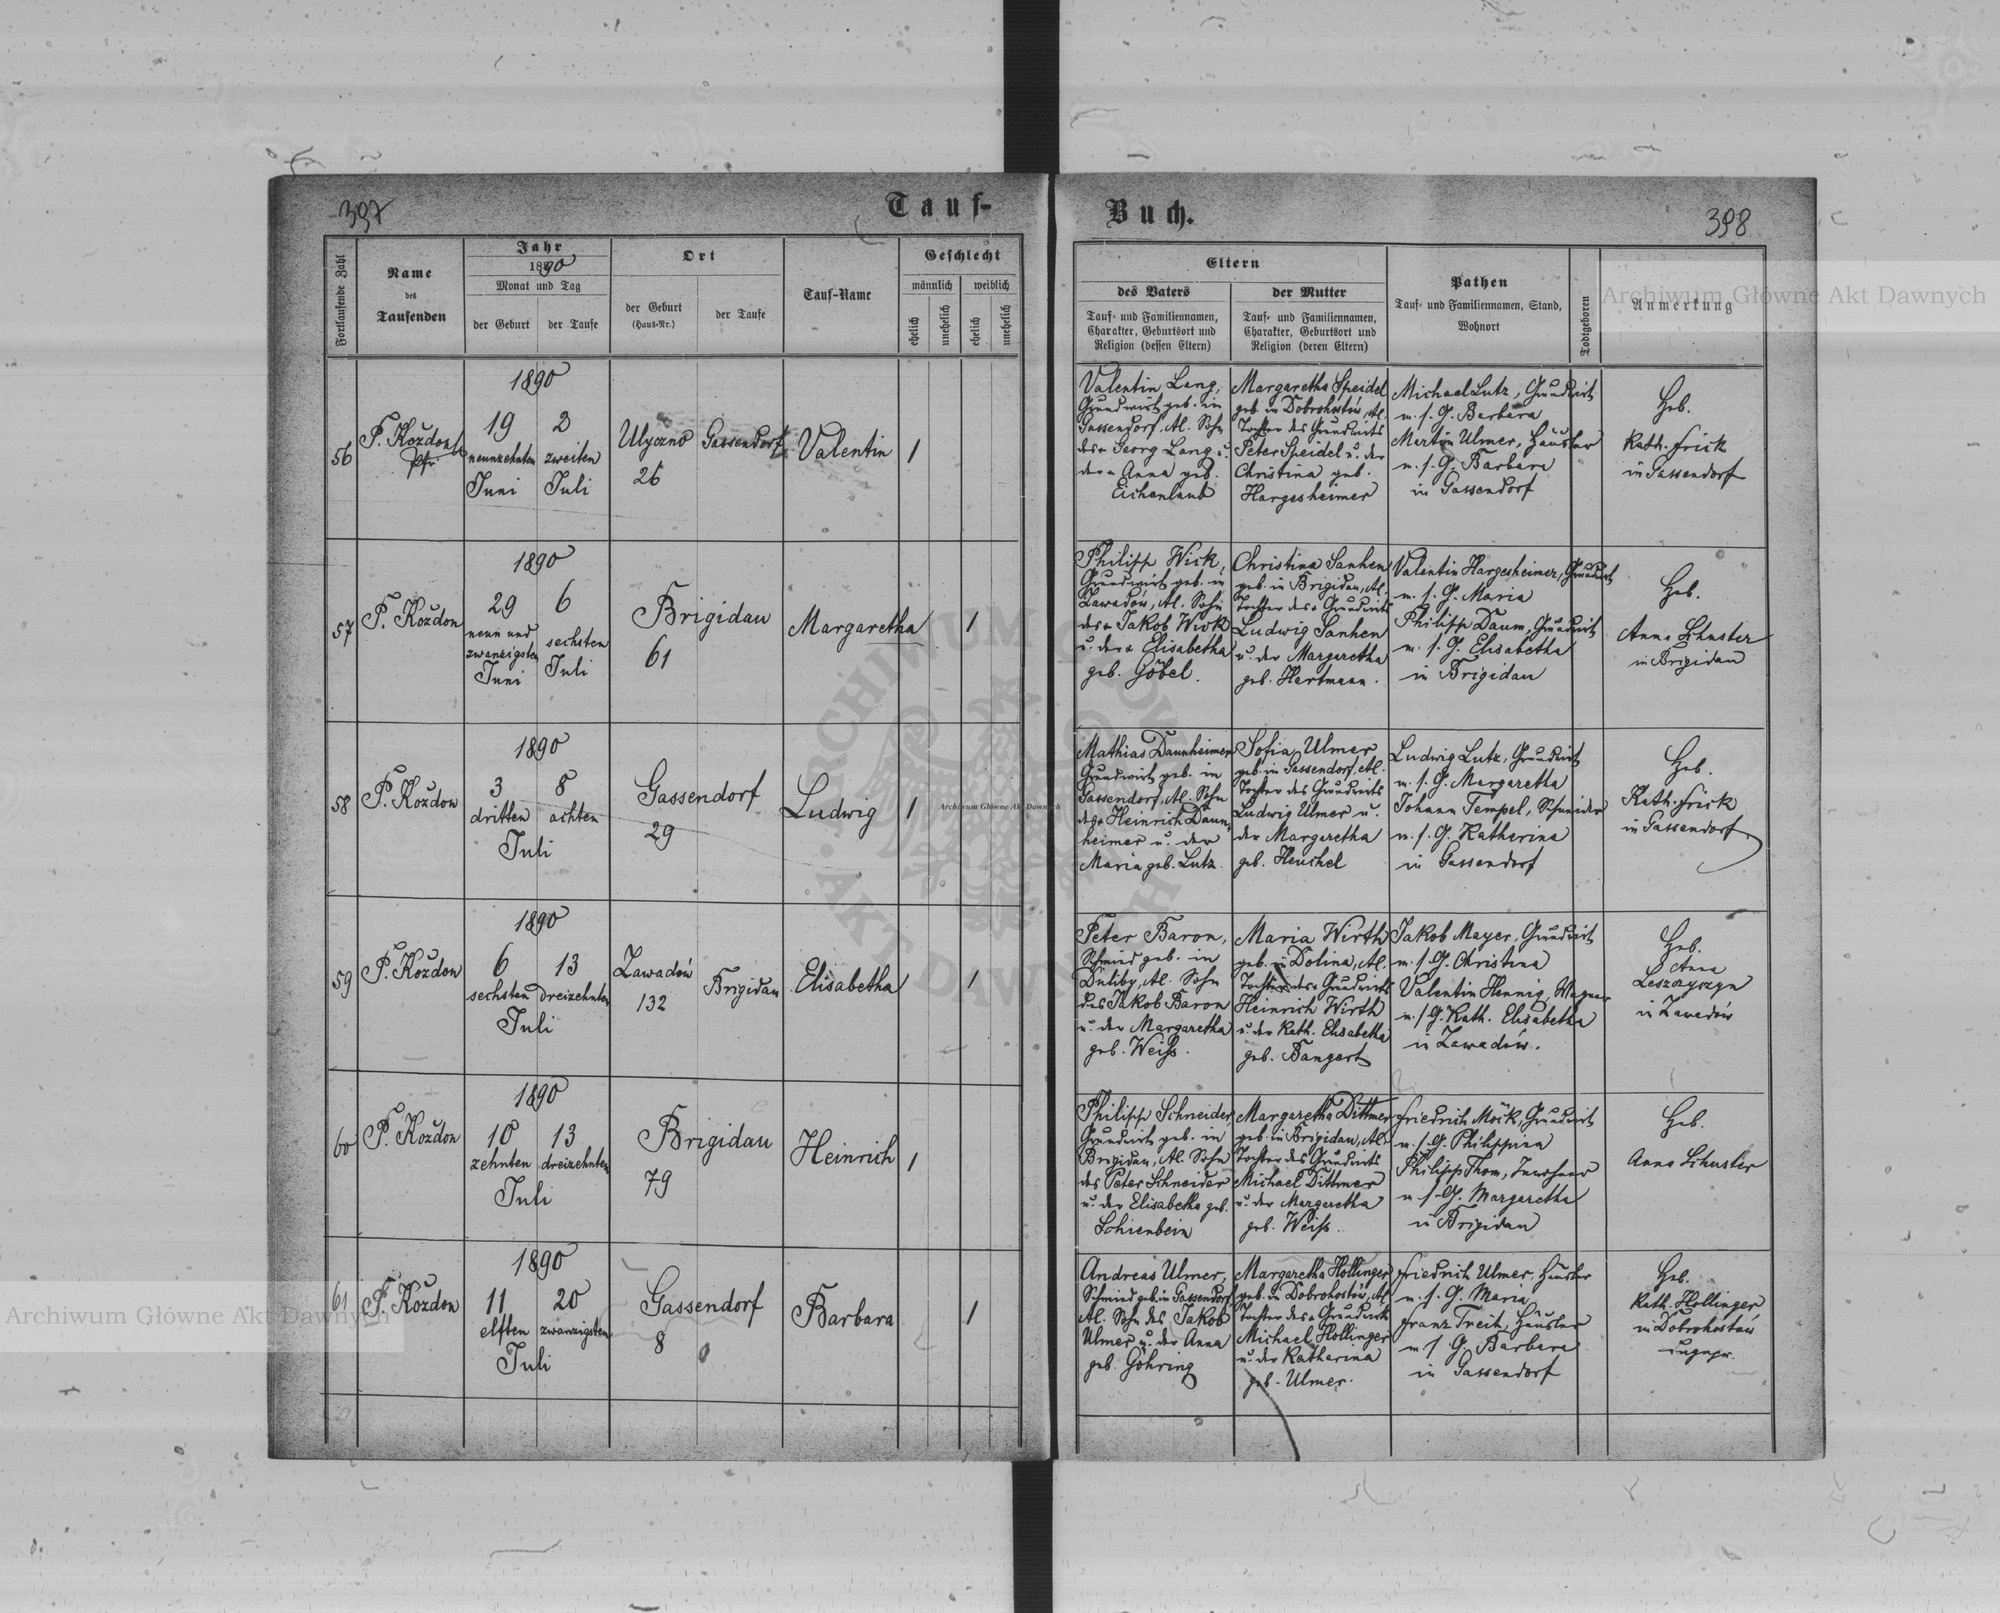 397
Tauf-
Buch.
398
Fortlaufende Zahl
Name
des
Taufenden
Jahr
1890
Monat und Tag
der Geburt
der Taufe
Ort
der Geburt
(Haus-Nr.)
der Taufe
Tauf-Name
Geschlecht
männlich
weiblich
ehelich
unehelich
ehelich
unehelich
Eltern
des Vaters
Tauf- und Familiennamen,
Charakter, Geburtsort und
Religion (dessen Eltern)
der Mutter
Tauf- und Familiennamen,
Charakter, Geburtsort und
Religion (deren Eltern)
Pathen
Tauf- und Familiennamen, Stand,
Wohnort
Todtgeboren
Anmerkung
56
P. Koždon
Pfr.
1890
19
neunzehnten
Juni
2
zweiten
Juli
Ulyczno
26
Gassendorf
Valentin
1
Valentin Lang,
Grundwirt geb. in
Gassendorf, Al. Sohn
des Georg Lang u.
der Anna geb.
Eichenlaub
Margaretha Speidel
geb. in Dobrohostów, Al.
Tochter des Grundwirts
Peter Speidel u. der
Christina geb.
Hargesheimer
Michael Lutz, Grundwirt
m. s. G. Barbara
Martin Ulmer, Häusler
m. s. G. Barbara
in Gassendorf
Heb.
Kath. Frick
in Gassendorf
57
P. Koždon
1890
29
neun und
zwanzigsten
Juni
6
sechsten
Juli
Brigidau
61
Margaretha
1
Philipp Wick,
Grundwirt geb. in
Zawadów, Al. Sohn
des Jakob Wick
u. der Elisabetha
geb. Göbel.
Christina Sanhen
geb. in Brigidau, Al.
Tochter des Grundwirts
Ludwig Sanhen
u. der Margaretha
geb. Hartmann.
Valentin Hargesheimer, Grundwirt
m. s. G. Maria
Philipp Daum, Grundwirt
m. s. G. Elisabetha
in Brigidau
Heb.
Anna Schuster
in Brigidau
58
P. Koždon
1890
3
dritten
8
achten
Juli
Gassendorf
29
Ludwig
1
Mathias Daunheimer
Grundwirt geb. in
Gassendorf, Al. Sohn
des Heinrich Daun-
heimer u. der
Maria geb. Lutz.
Sofia Ulmer
geb. in Gassendorf, Al.
Tochter des Grundwirts
Ludwig Ulmer u.
der Margaretha
geb. Heuchel
Ludwig Lutz, Grundwirt
m. s. G. Margaretha
Johann Tempel, Schneider
m. s. G. Katharina
in Gassendorf
Heb.
Kath. Frick
in Gassendorf
59
P. Koždon
1890
6
sechsten
13
dreizehnten
Juli
Zawadów
132
Brigidau
Elisabetha
1
Peter Baron,
Schmied geb. in
Duliby, Al. Sohn
des Jakob Baron
u. der Margaretha
geb. Weiß.
Maria Wirth
geb. in Dolina, Al.
Tochter des Grundwirts
Heinrich Wirth
u. der Kath. Elisabetha
geb. Bangert
Jakob Mayer, Grundwirt
m. s. G. Christina
Valentin Hennig, Wagner
m. s. G. Kath. Elisabetha
in Zawadów.
Heb.
Anna
Leszczyszyn
in Zawadów
60
P. Koždon
1890
10
zehnten
13
dreizehnten
Juli
Brigidau
79
Heinrich
1
Philipp Schneider,
Grundwirt geb. in
Brigidau, Al. Sohn
des Peter Schneider
u. der Elisabetha geb.
Schienbein
Margaretha Dittmer
geb. in Brigidau, Al.
Tochter des Grundwirts
Michael Dittmer
u. der Margaretha
geb. Weiß.
Friedrich Möck, Grundwirt
m. s. G. Philippina
Philipp Thom, Inwohner
m. s. G. Margaretha
in Brigidau
Heb.
Anna Schuster
61
P. Koždon
1890
11
elften
20
zwanzigsten
Juli
Gassendorf
8
Barbara
1
Andreas Ulmer,
Schmied geb. in Gassendorf
Al. Sohn des Jakob
Ulmer u. der Anna
geb. Göhring
Margaretha Hollinger
geb. in Dobrohostów, Al.
Tochter des Grundwirts
Michael Hollinger
u. der Katharina
geb. Ulmer.
Friedrich Ulmer, Häusler
m. s. G. Maria
Franz Treit, Häusler
m. s. G. Barbara
in Gassendorf
Heb.
Kath. Hollinger
in Dobrohostów
Archiwum Główne Akt Dawnych
Archiwum Główne Akt Dawnych
Archiwum Główne Akt Dawnych